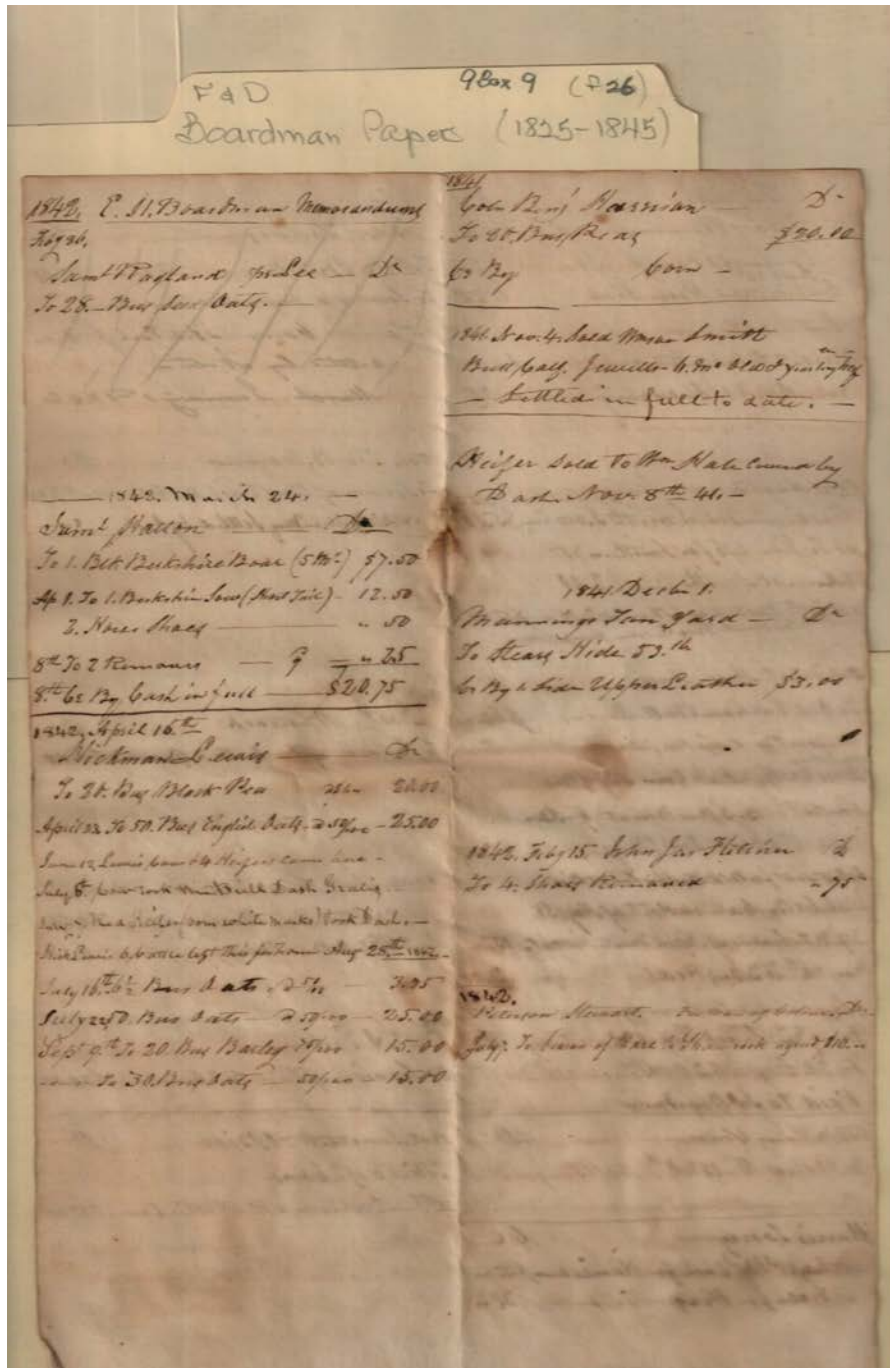 F & D 9Box 9 (F26)
Boardman Paper (1825-1845)
1842. E. H. Boardman Memorandums
Feby 26.
Saml Ragland pr Lee — Dr
To 28 — Bus Oats. —
— 1842. March 24. —
Saml — Dr
To 1. Blk Berkshire Boar (5 Mo) $7.50
Ap 1. To 1. Berkshire Sow ( Tail) - 12.50
2. Horse Shoes — " 50
8th To 2 Removes — " 25
8th Cr By Cash in full — $20.75
1842, April 16th
Hickman Lewis — Dr
To 20. Bus Black Pea 20.00
April 23. To 50. Bus English Oats - a 50/100 - 25.00
June 12, Lewis, Cow & 4 Heifers came here -
July 8th, Cow took Bull Dash
Red Heifer white marks took Dash. —
Lewis 6, Cattle left this for home Aug 25th 1842 -
July 16th 6½ Bus Oats
July 22 50. Bus Oats — a 50/100 — 25.00
Sept 9th To 20 Bus Barley 75/100 — 15.00
To 30. Bus Oats — 50/100 — 15.00
1841
Coln Benj Harrison — Dr
To 20. Bus Peas $20.00
Cr By Corn —
1841. Nov. 4. Sold Smith
Bull Calf. 6. Mo old & yearling
— Settled in full to date. —
Heifer sold to Wm Hale by
Dash. Nov. 8th 41. —
1841 Decbr 1.
Mannings Tan Yard — Dr
To Steers Hide 53. lb
Cr By 1 Side Upper Leather $3.00
1842. Feby 15. John Jas Fletcher D
To 4. Shoes Removed " 75
1842.
Peterson Stewart. Dr
July. To of Mare